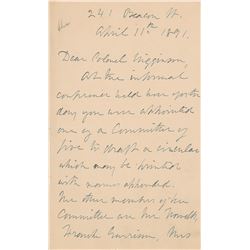 241 Beacon St.
April 11th 1891.
Dear Colonel Higginson,
At the informal
conference held here yester
day you were appointed
one of a Committee of
five to draft a circular
which may be printed
with names appended.
The other members of the
Committee are Mr. Howells
Francis Garrison, Mrs